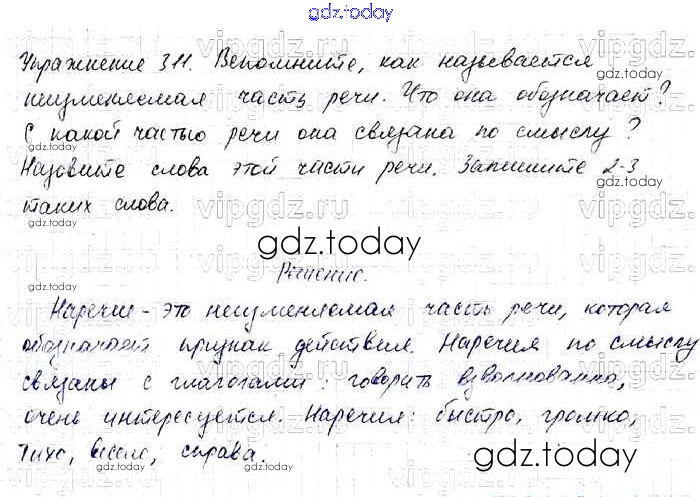 gdz.today
Упражнение 311. Вспомните, как называется
неизменяемая часть речи. Что она обозначает?
С какой частью речи она связана по смыслу?
Назовите слова этой части речи. Запишите 2-3
таких слова.
gdz.today
Решение.
Наречие - это неизменяемая часть речи, которая
обозначает признак действия. Наречия по смыслу
связаны с глаголами: говорить взволнованно,
очень интересуется. Наречия: быстро, громко,
тихо, весело, справа.
gdz.today